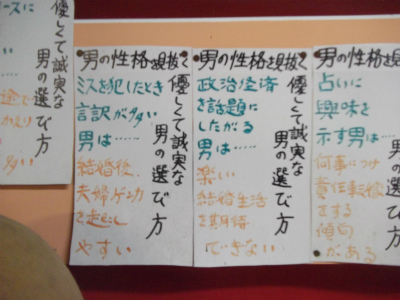 ースに
途で
かえり
多い
優しくて誠実な
男の選び方
男の性格を見抜く
ミスを犯したとき
言訳が多い
男は……
結婚後、
夫婦ゲンカ
を起こし
やすい
優しくて誠実な
男の選び方
男の性格を見抜く
政治経済
を話題に
したがる
男は……
楽しい
結婚生活
を期待
できない
優しくて誠実な
男の選び方
男の性格を見抜
占いに
興味を
示す男は…
何事につけ
責任転嫁
をする
傾向
がある